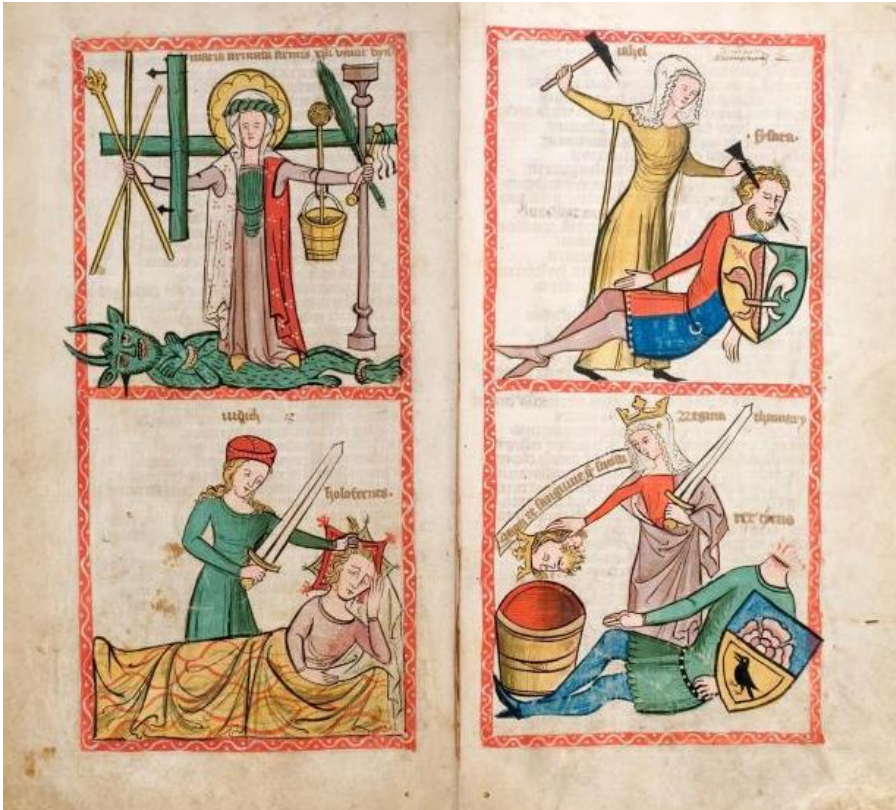 maria armata armis xpi vincit dya
iudith
holofernes.
iahel
· sysara ·
Regina thamary
te sanguine
rex cirus